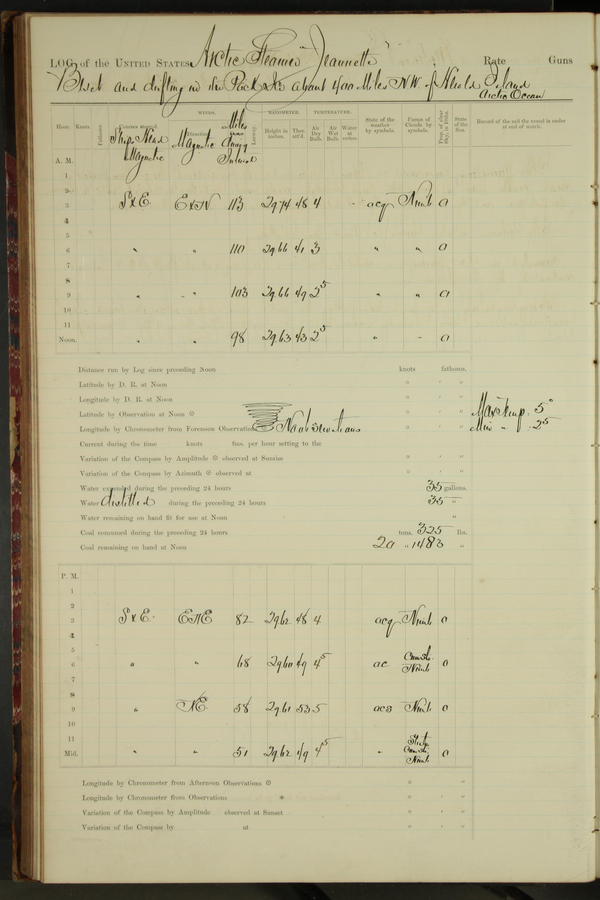 LOG of the UNITED STATES Arctic Steamer "Jeannette" Rate Guns
Beset and drifting in the Pack Ice about 400 Miles N W. of Herald Island
Arctic Ocean
WINDS. BAROMETER. TEMPERATURE.
Hour. Knots. Fathoms. Courses steered. Direction. Leeway. Height in inches. Ther. att'd. Air Dry Bulb. Air Wet Bulb. Water at surface. State of the weather by symbols. Forms of Clouds by symbols. Prop. of clear sky, in 10ths. State of the Sea. Record of the sail the vessel is under at end of watch.
Ship's Head Magnetic Magnetic Miles
A. M.
1
2
3 S & E. E x N 113 29 74 48 4 acq Nimb 0
4
5
6 " " 110 29.66 41 3 " " 0
7
8
9 " " 103 29.66 49 2 5 " " 0
10
11
Noon. " " 98 29.63 43 2 5 " " 0
Distance run by Log since preceding Noon knots fathoms.
Latitude by D. R. at Noon ° ' "
Longitude by D. R. at Noon ° ' "
Latitude by Observation at Noon ⊙ ° ' " Max Temp. 5°
Longitude by Chronometer from Forenoon Observations No observations ° ' " Min " 2 5
Current during the time knots fms. per hour setting to the
Variation of the Compass by Amplitude ⊙ observed at Sunrise ° ' "
Variation of the Compass by Azimuth ⊙ observed at ° ' "
Water expended during the preceding 24 hours 35 gallons.
Water distilled during the preceding 24 hours 35 "
Water remaining on hand fit for use at Noon "
Coal consumed during the preceding 24 hours tons. 325 lbs.
Coal remaining on hand at Noon 20 " 1483 "
P. M.
1
2
3 S & E. ENE 82 29 62 48 4 acq Nimb 0
4
5
6 " " 68 29 60 49 4 5 ac Cum St. Nimb 0
7
8
9 " NE 58 29 61 53 5 acs Nimb 0
10
11
Mid. " " 51 29.62 49 4 5 " Cum St. Nimb 0
Longitude by Chronometer from Afternoon Observations ⊙ ° ' "
Longitude by Chronometer from Observations * ° ' "
Variation of the Compass by Amplitude observed at Sunset ° ' "
Variation of the Compass by at ° ' "